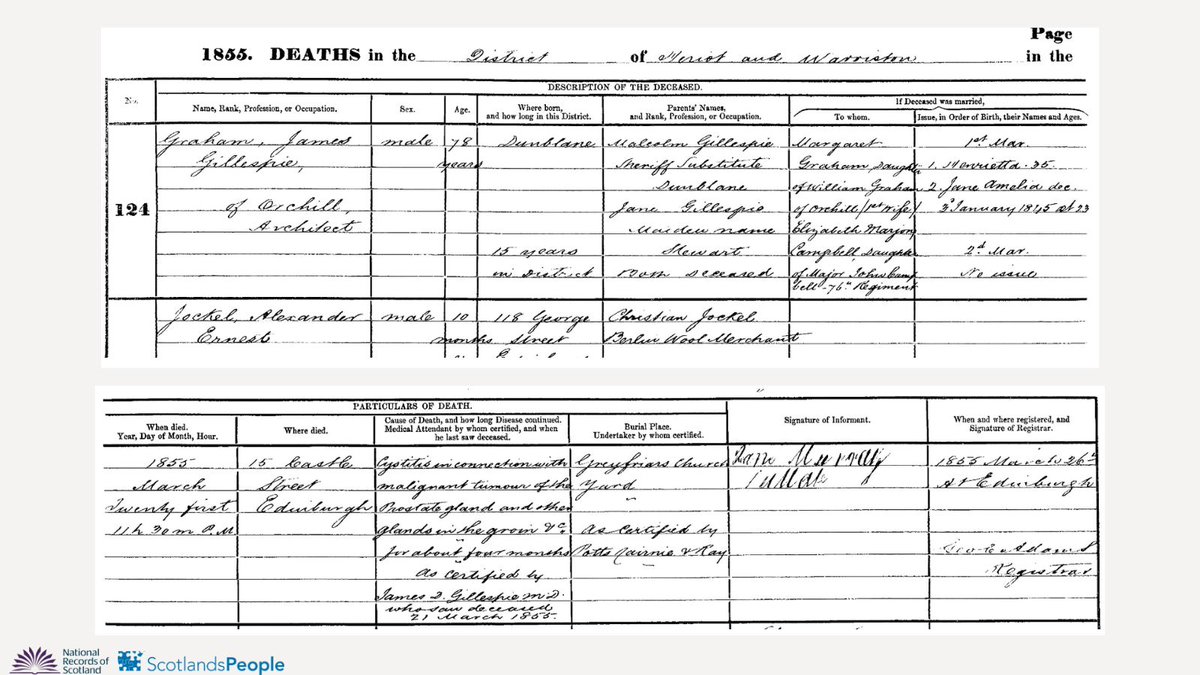 Page
1855. DEATHS in the District of Heriot and Warriston in the
DESCRIPTION OF THE DECEASED.
No.
Name, Rank, Profession, or Occupation.
Sex.
Age.
Where born,
and how long in this District.
Parents' Names,
and Rank, Profession, or Occupation.
If Deceased was married,
To whom.
Issue, in Order of Birth, their Names and Ages.
124
Graham, James
Gillespie,
of Orchill,
Architect
male
78
years
Dunblane
15 years
in District
Malcolm Gillespie
Sheriff Substitute
Dunblane
Jane Gillespie
Maiden name
Stewart
Both deceased
Margaret
Graham, Daughter
of William Graham
of Orchill (1st Wife)
Elizabeth Marjory
Campbell, Daughter
of Major John Camp
bell - 76th Regiment
1st Mar.
1. Henrietta. 35.
2. Jane Amelia dec.
3d January 1845 at 23
2d Mar.
No issue
Jockel, Alexander
Ernest
male
10
months
118 George
Street
Christian Jockel
Berlin Wool Merchant
PARTICULARS OF DEATH.
When died.
Year, Day of Month, Hour.
Where died.
Cause of Death, and how long Disease continued.
Medical Attendant by whom certified, and when
he last saw deceased.
Burial Place.
Undertaker by whom certified.
Signature of Informant.
When and where registered, and
Signature of Registrar.
1855
March
Twenty first
11 h 30 m P.M
15 Castle
Street
Edinburgh
Cystitis in connection with
malignant tumour of the
Prostate gland and other
glands in the groin &c.
for about four months
As certified by
James D. Gillespie M.D.
who saw deceased
21 March 1855.
Greyfriars Church
Yard
"
As certified by
Potts Cairnie & Ray
Murray
Inmate
1855 March 26th
At Edinburgh
Adams
Registrar
National
Records of
Scotland
ScotlandsPeople